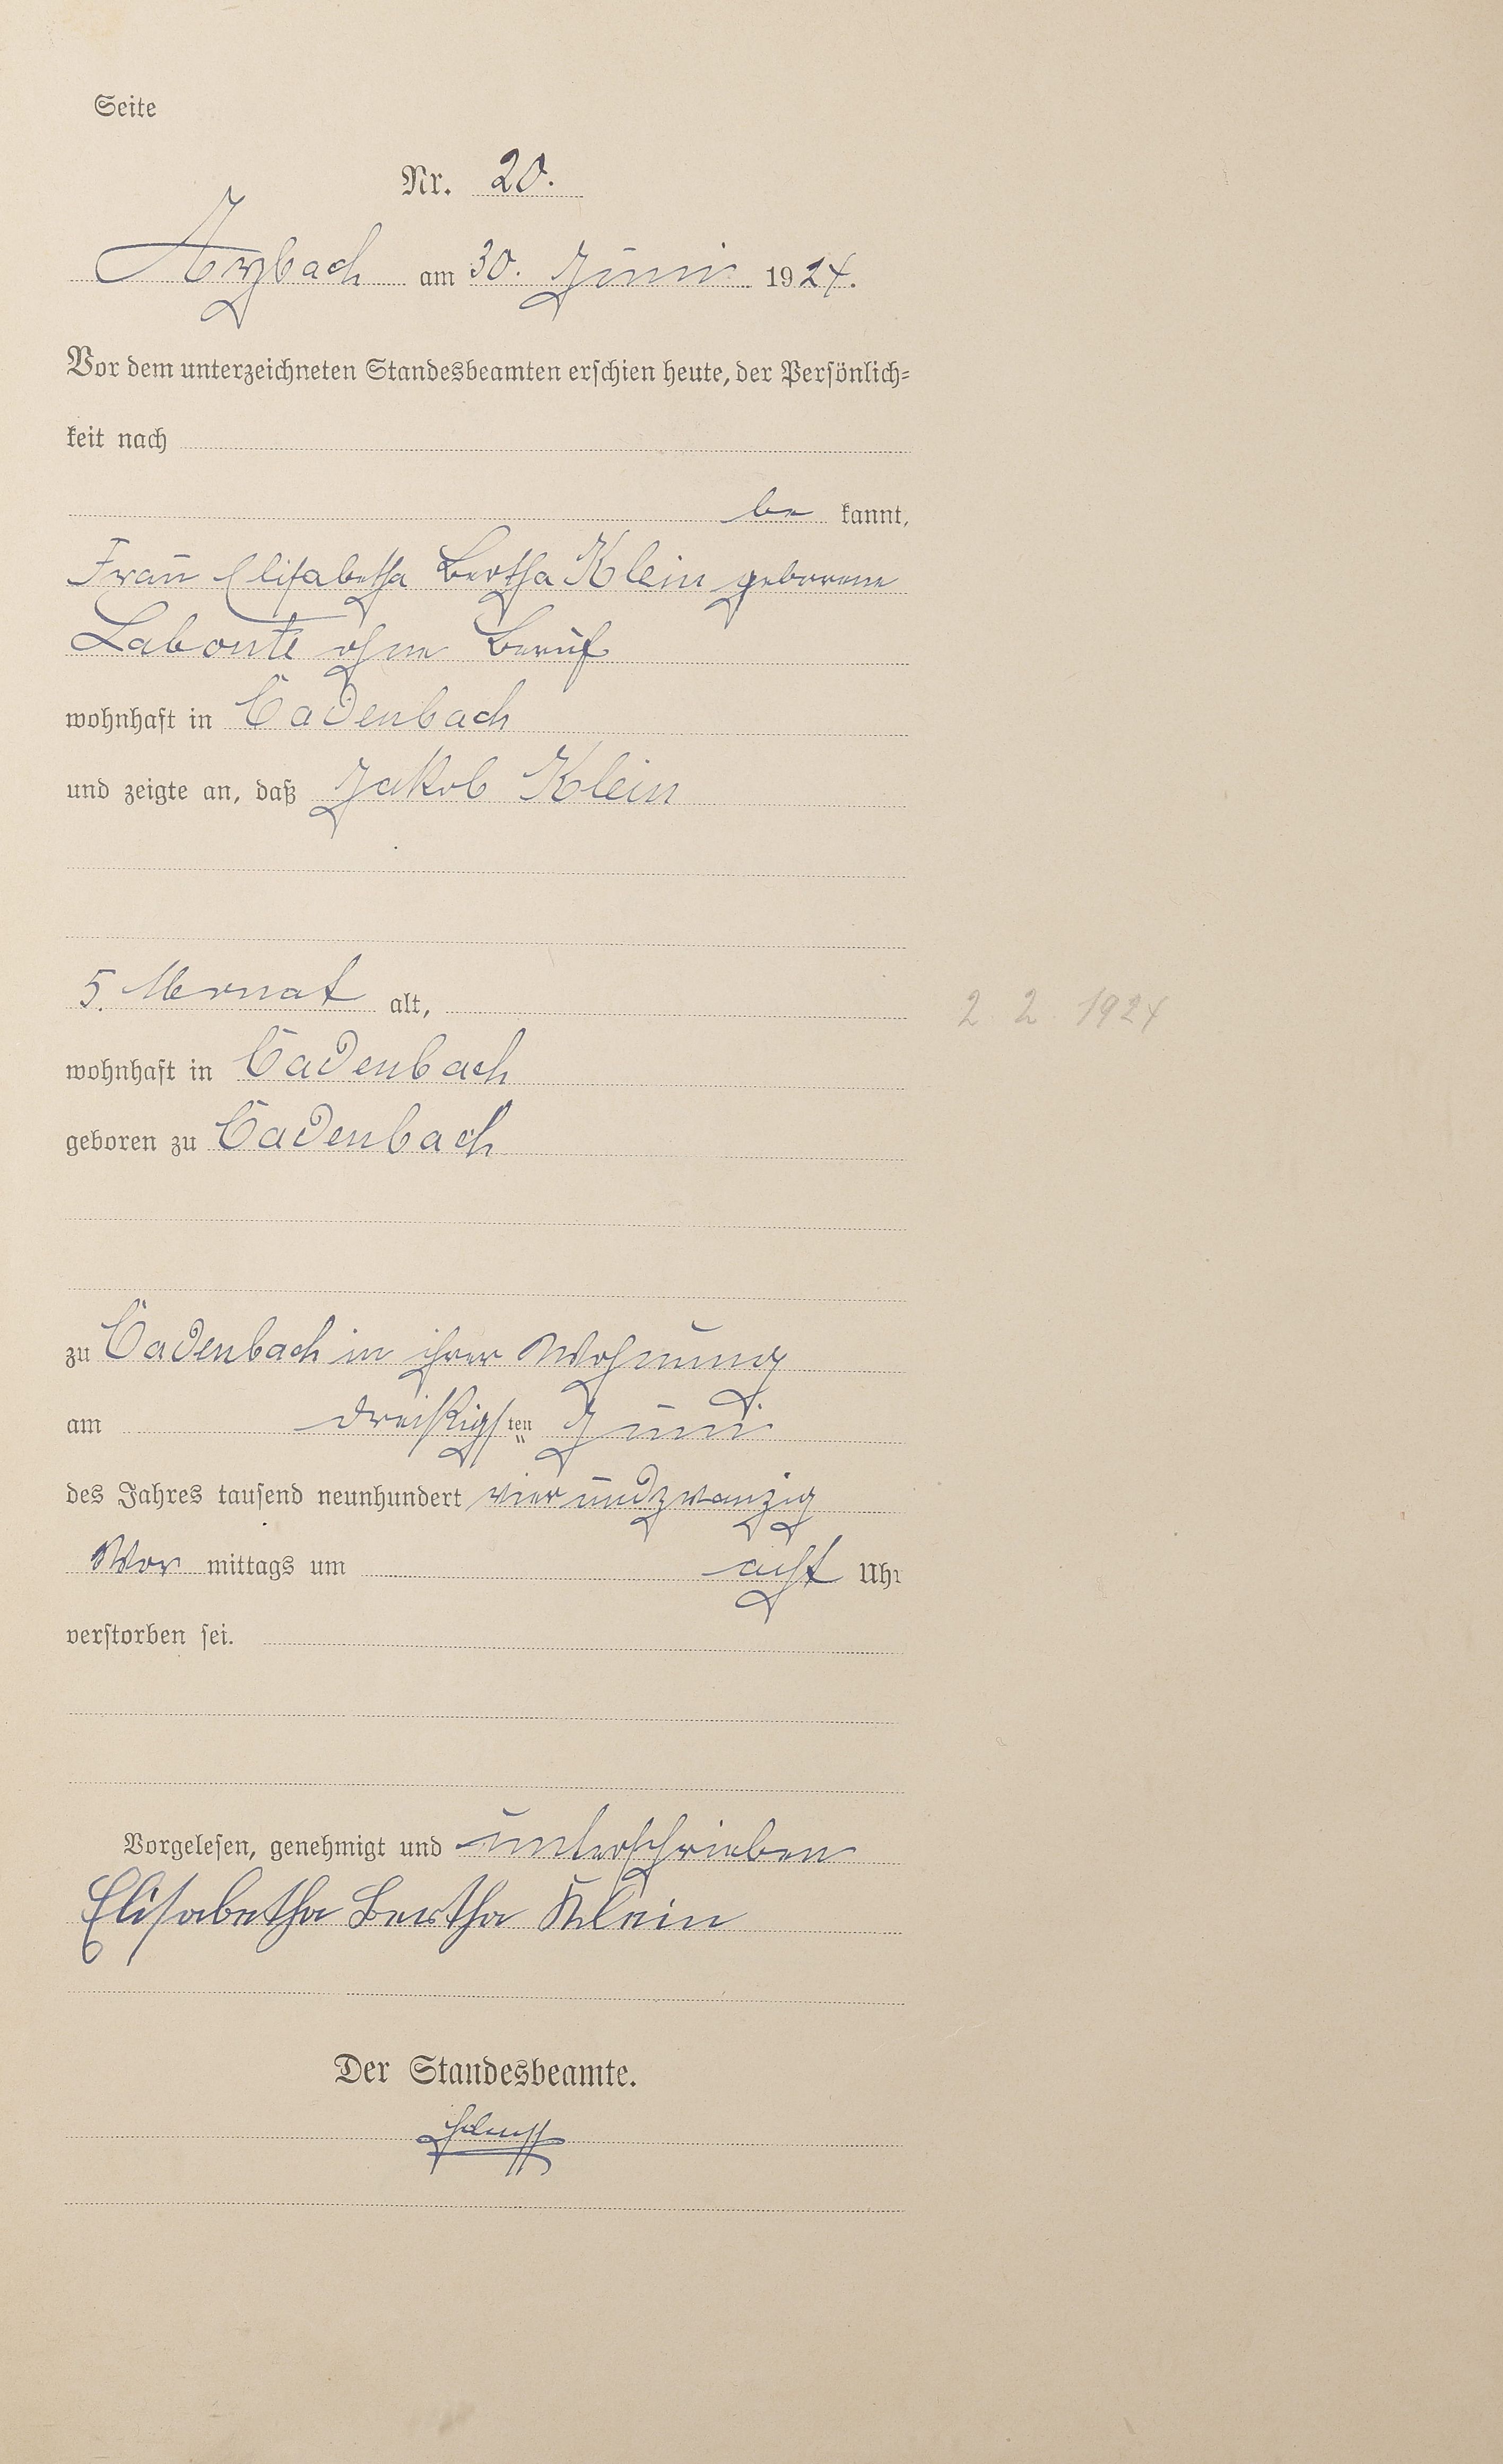 Seite
Nr. 20.
Arzbach am 30. Juni 1924.
Vor dem unterzeichneten Standesbeamten erschien heute, der Persönlich=
keit nach
be kannt,
Frau Elisabetha Bertha Klein geborene
Labonté ohne Beruf
wohnhaft in Cadenbach
und zeigte an, daß Jakob Klein
5. Mornat alt,
2. 2. 1924
wohnhaft in Cadenbach
geboren zu Cadenbach
zu Cadenbach in ihrer Wohnung
am dreißigsten Juni
des Jahres tausend neunhundert vierundzwanzig
Vor mittags um acht Uhr
verstorben sei.
Vorgelesen, genehmigt und unterschrieben
Elisabetha Bertha Klein
Der Standesbeamte.